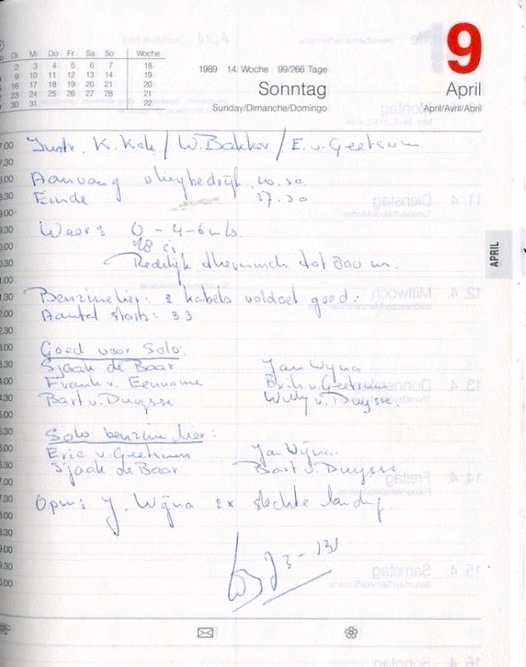 9
Di Mi Do Fr Sa So Woche
2 3 4 5 6 7 18
9 10 11 12 13 14 19
16 17 18 19 20 21 20
23 24 25 26 27 28 21
30 31 22
1989 14. Woche 99/266 Tage
Sonntag
Sunday/Dimanche/Domingo
April
April/Avril/Abril
Instr. K. Kok / W. Bakker / E. v. Geetsum.
Aanvang vliegbedrijf 10.30
Einde 17.30
Weer: O - 4-6 m/s
Redelijk thermisch tot 800 m.
APRIL
Benzinelier: 2 kabels voldoet goed.
Aantal starts: 33
Goed voor Solo:
Sjaak de Baar Jan Wijna
Frank v. Eenname Erik v. Geetsum
Bart v. Duysse Willy v. Duysse.
Solo benzine lier:
Eric v. Geetsum Jan Wijna.
Sjaak de Baar Bart v. Duysse
Opm: J. Wijna 2x slechte landing